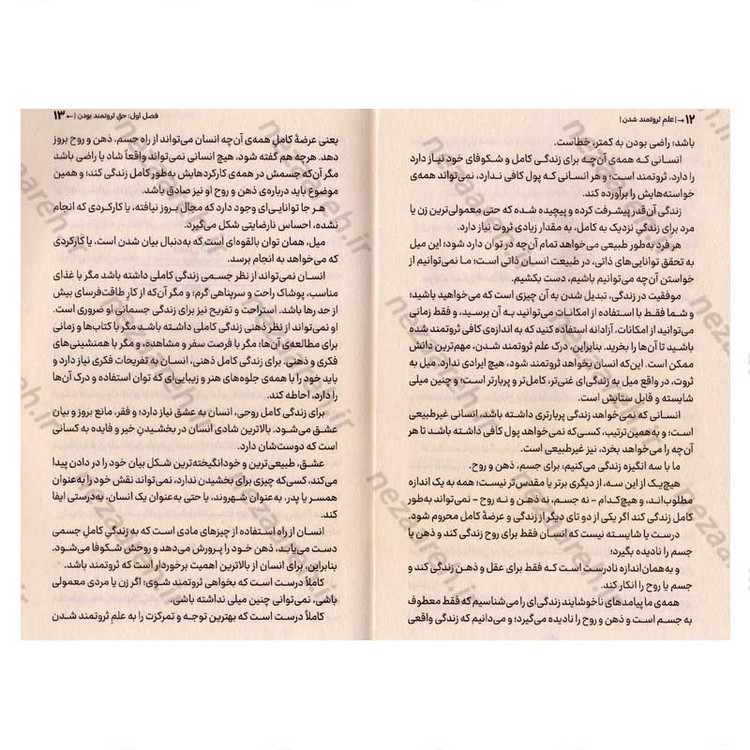 ۱۲ ←[ علم ثروتمند شدن ]
باشد؛ راضی بودن به کمتر، خطاست.
انسانی که همه‌ی آن‌چه برای زندگی کامل و شکوفای خود نیاز دارد
را دارد، ثروتمند است؛ و هر انسانی که پول کافی ندارد، نمی‌تواند همه‌ی
خواسته‌هایش را برآورده کند.
زندگی آن‌قدر پیشرفت کرده و پیچیده شده که حتی معمولی‌ترین زن یا
مرد برای زندگی نزدیک به کامل، به مقدار زیادی ثروت نیاز دارد.
هر فرد به‌طور طبیعی می‌خواهد تمام آن‌چه در توان دارد شود؛ این میل
به تحقق توانایی‌های ذاتی، در طبیعت انسان ذاتی است؛ ما نمی‌توانیم از
خواستن آن‌چه می‌توانیم باشیم، دست بکشیم.
موفقیت در زندگی، تبدیل شدن به آن چیزی است که می‌خواهید باشید؛
و شما فقط با استفاده از امکانات می‌توانید به آن برسید، و فقط زمانی
می‌توانید از امکانات، آزادانه استفاده کنید که به اندازه‌ی کافی ثروتمند شده
باشید تا آن‌ها را بخرید. بنابراین، درک علم ثروتمند شدن، مهم‌ترین دانش
ممکن است. این‌که انسان بخواهد ثروتمند شود، هیچ ایرادی ندارد. میل به
ثروت، در واقع میل به زندگی‌ای غنی‌تر، کامل‌تر و پربارتر است؛ و چنین میلی
شایسته و قابل ستایش است.
انسانی که نمی‌خواهد زندگی پربارتری داشته باشد، انسانی غیرطبیعی
است؛ و به‌همین‌ترتیب، کسی‌که نمی‌خواهد پول کافی داشته باشد تا هر
آن‌چه را می‌خواهد بخرد، نیز غیرطبیعی است.
ما با سه انگیزه زندگی می‌کنیم: برای جسم، ذهن و روح.
هیچ‌یک از این سه، از دیگری برتر یا مقدس‌تر نیست؛ همه به یک اندازه
مطلوب‌اند، و هیچ‌کدام – نه جسم، نه ذهن و نه روح – نمی‌تواند به‌طور
کامل زندگی کند اگر یکی از دو تای دیگر از زندگی و عرضهٔ کامل محروم شود.
درست یا شایسته نیست که انسان فقط برای روح زندگی کند و ذهن یا
جسم را نادیده بگیرد؛
و به‌همان‌اندازه نادرست است که فقط برای عقل و ذهن زندگی کند و
جسم یا روح را انکار کند.
همه‌ی ما پیامدهای ناخوشایند زندگی‌ای را می‌شناسیم که فقط معطوف
به جسم است و ذهن و روح را نادیده می‌گیرد؛ و می‌دانیم که زندگی واقعی
فصل اول: حق ثروتمند بودن ]← ۱۳
یعنی عرضهٔ کامل همه‌ی آن‌چه انسان می‌تواند از راه جسم، ذهن و روح بروز
دهد. هرچه هم گفته شود، هیچ انسانی نمی‌تواند واقعاً شاد یا راضی باشد
مگر آن‌که جسمش در همه‌ی کارکردهایش به‌طور کامل زندگی کند؛ و همین
موضوع باید درباره‌ی ذهن و روح او نیز صادق باشد.
هر جا توانایی‌ای وجود دارد که مجال بروز نیافته، یا کارکردی که انجام
نشده، احساس نارضایتی شکل می‌گیرد.
میل، همان توان بالقوه‌ای است که به‌دنبال بیان شدن است، یا کارکردی
که می‌خواهد به انجام برسد.
انسان نمی‌تواند از نظر جسمی زندگی کاملی داشته باشد مگر با غذای
مناسب، پوشاک راحت و سرپناهی گرم؛ و مگر آن‌که از کارِ طاقت‌فرسای بیش
از حد رها باشد. استراحت و تفریح نیز برای زندگی جسمانی او ضروری است.
او نمی‌تواند از نظر ذهنی زندگی کاملی داشته باشد مگر با کتاب‌ها و زمانی
برای مطالعه‌ی آن‌ها؛ مگر با فرصت سفر و مشاهده، و مگر با همنشینی‌های
فکری و ذهنی. برای زندگی کامل ذهنی، انسان به تفریحات فکری نیاز دارد و
باید خود را با همه‌ی جلوه‌های هنر و زیبایی که توان استفاده و درک آن‌ها
را دارد، احاطه کند.
برای زندگی کامل روحی، انسان به عشق نیاز دارد؛ و فقر، مانع بروز و بیان
عشق می‌شود. بالاترین شادی انسان در بخشیدنِ خیر و فایده به کسانی
است که دوست‌شان دارد.
عشق، طبیعی‌ترین و خودانگیخته‌ترین شکل بیان خود را در دادن پیدا
می‌کند. کسی‌که چیزی برای بخشیدن ندارد، نمی‌تواند نقش خود را به‌عنوان
همسر یا پدر، به‌عنوان شهروند، یا حتی به‌عنوان یک انسان، به‌درستی ایفا
کند.
انسان از راه استفاده از چیزهای مادی است که به زندگیِ کاملِ جسمی
دست می‌یابد، ذهن خود را پرورش می‌دهد و روحش شکوفا می‌شود.
بنابراین، برای انسان از بالاترین اهمیت برخوردار است که ثروتمند باشد.
کاملاً درست است که بخواهی ثروتمند شوی؛ اگر زن یا مردی معمولی
باشی، نمی‌توانی چنین میلی نداشته باشی.
کاملاً درست است که بهترین توجه و تمرکزت را به علم ثروتمند شدن
nezaareh.ir